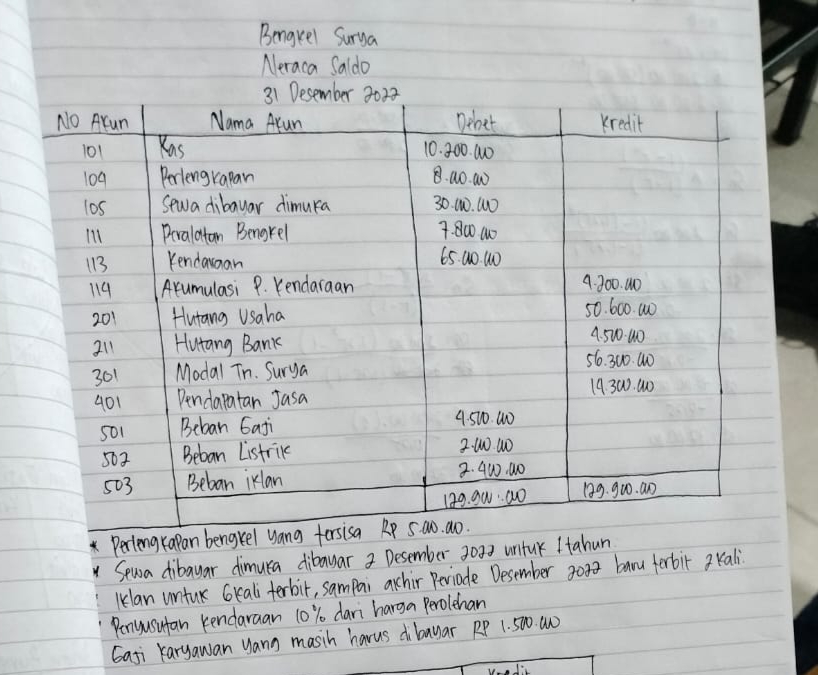 Bengkel Surya
Neraca Saldo
31 Desember 2022
NO Akun Nama Akun Debet Kredit
101 Kas 10.200.000
104 Perlengkapan 8.000.000
105 Sewa dibayar dimuka 30.000.000
111 Peralatan Bengkel 7.800.000
113 Kendaraan 65.000.000
114 Akumulasi P. Kendaraan 4.200.000
201 Hutang Usaha 50.600.000
211 Hutang Bank 4.500.000
301 Modal Tn. Surya 56.300.000
401 Pendapatan Jasa 14.300.000
501 Beban Gaji 4.500.000
502 Beban Listrik 2.000.000
503 Beban iklan 2.400.000
129.900.000 129.900.000
* Perlengkapan bengkel yang tersisa RP 5.000.000.
* Sewa dibayar dimuka dibayar 2 Desember 2022 untuk 1 tahun
Iklan untuk 6 kali terbit, sampai akhir Periode Desember 2022 baru terbit 2 kali.
Penyusutan kendaraan 10% dari harga Perolehan
Gaji karyawan yang masih harus dibayar RP 1.500.000
Kredit